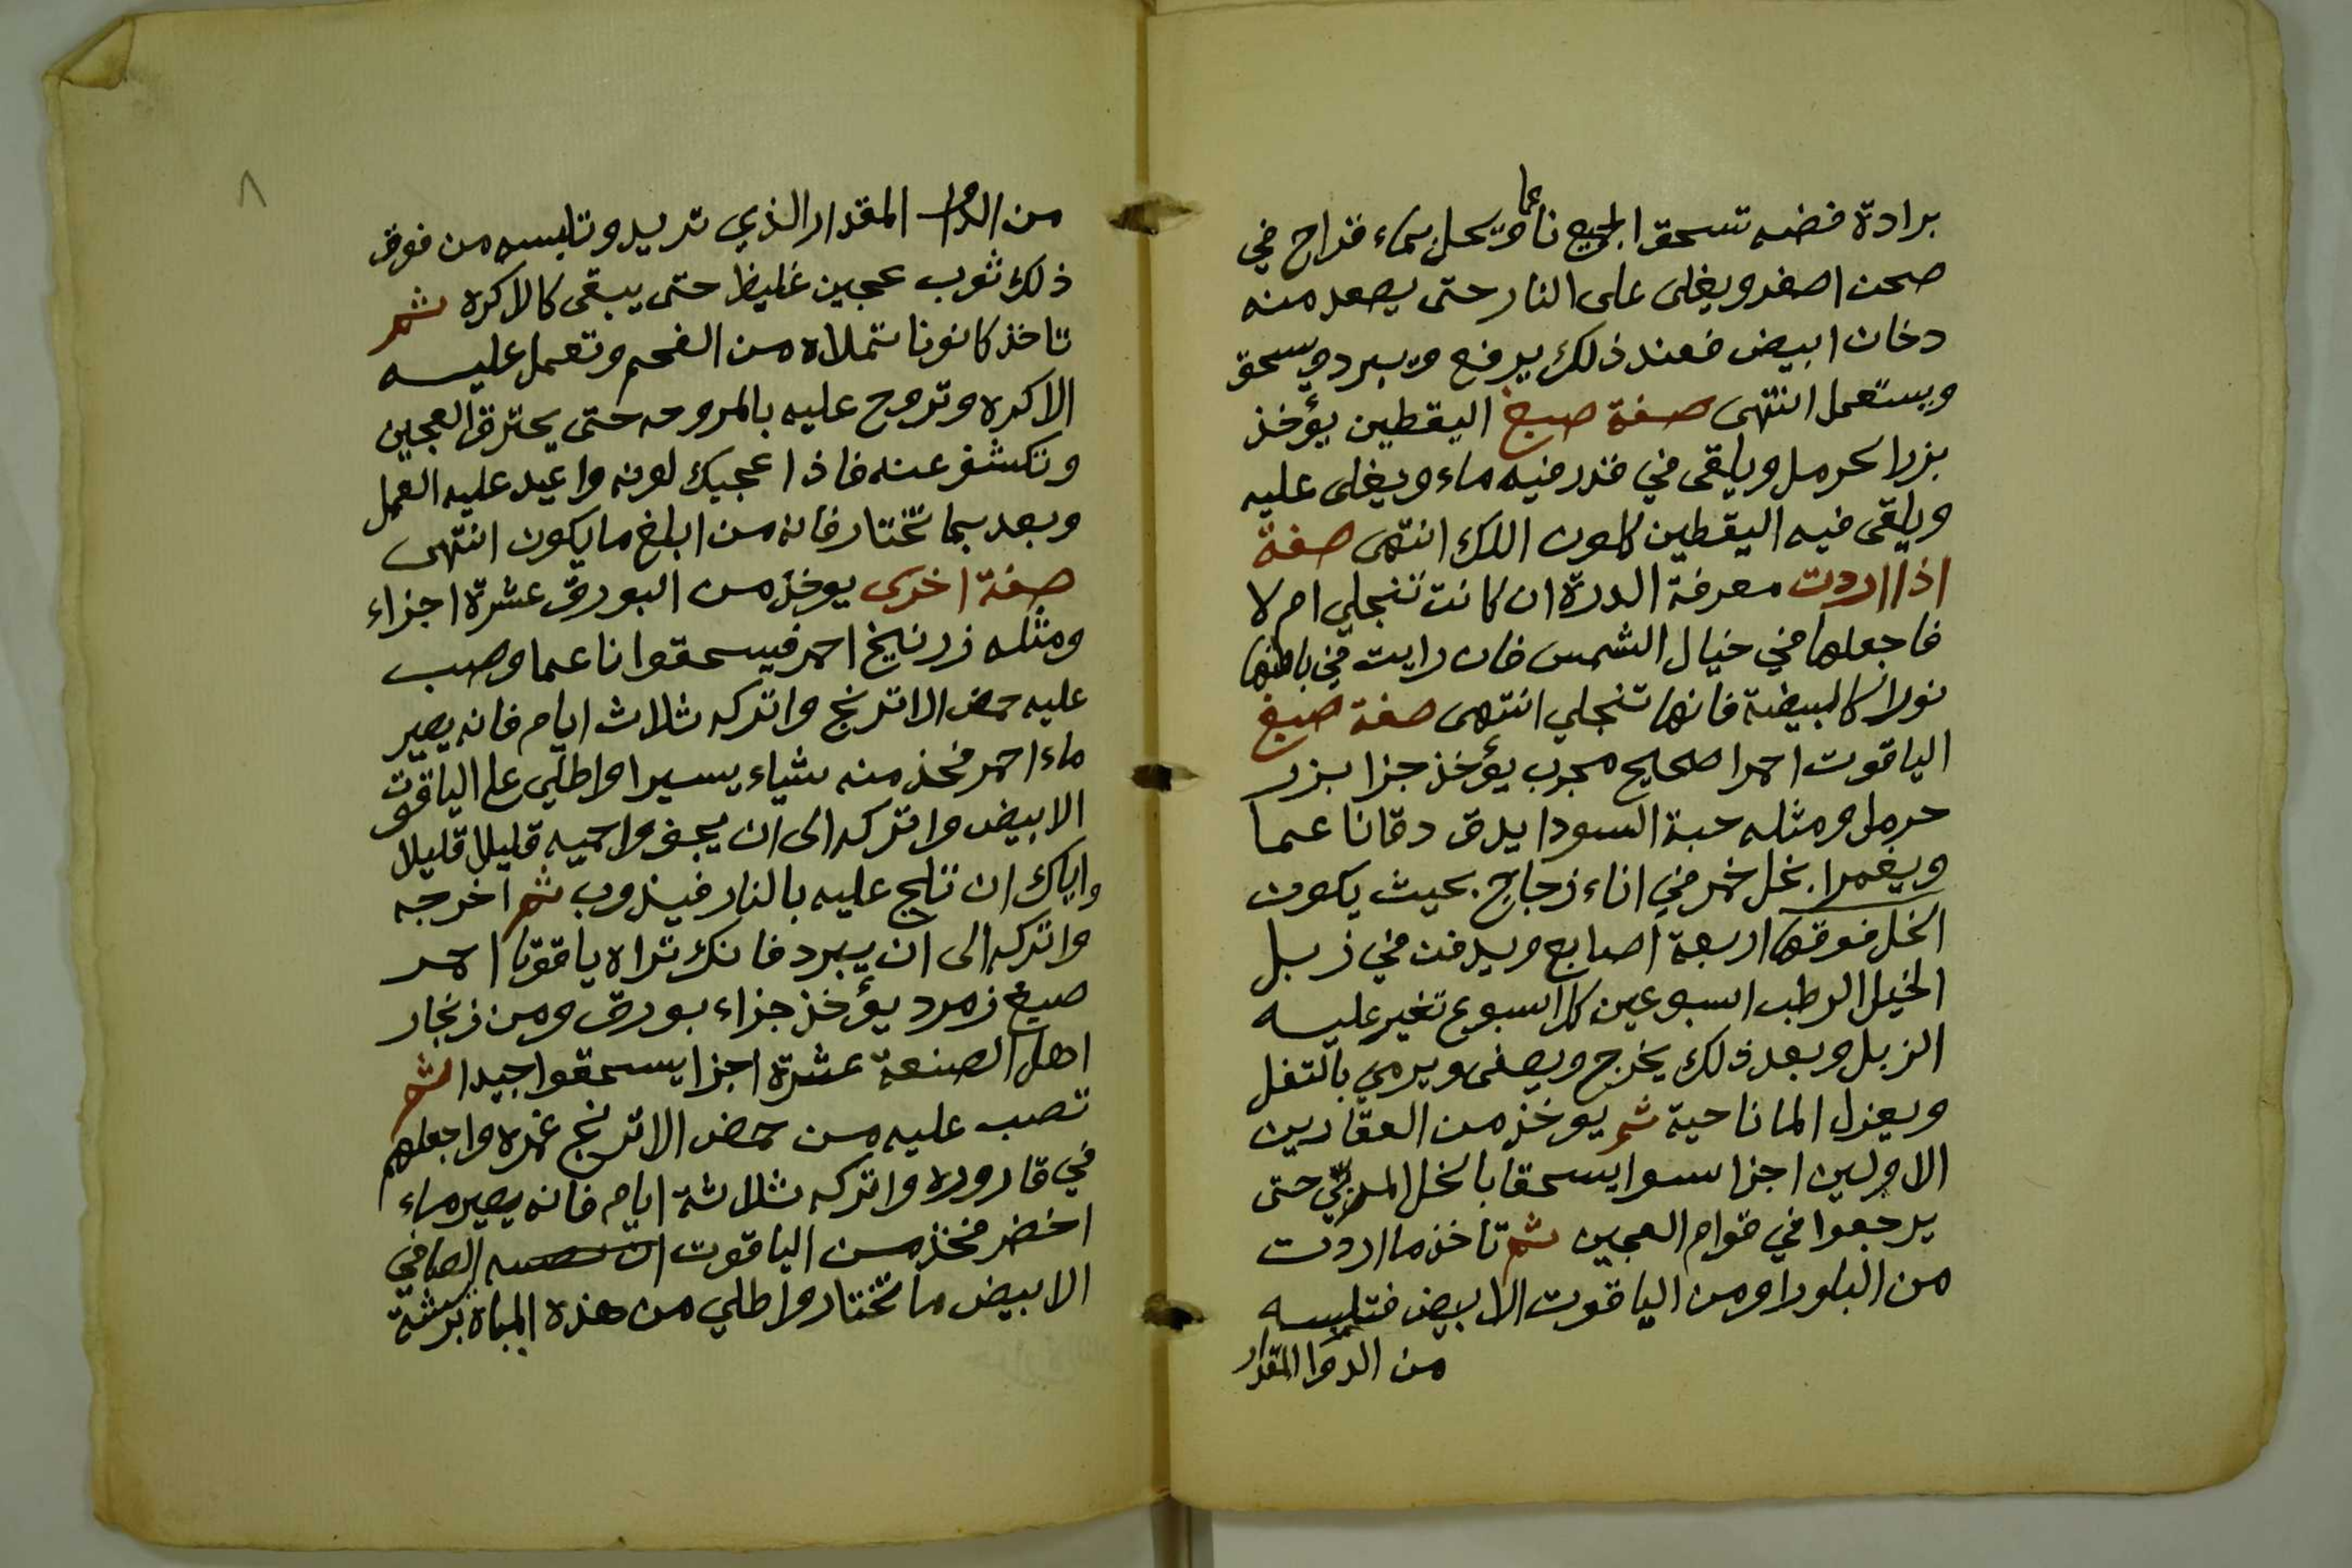 برادة فضه تسحق الجميع ناعما ويحل بماء قراح في
صحن اصفر ويغلى على النار حتى يصعد منه
دخان ابيض فعند ذلك يرفع ويبرد ويسحق
ويستعمل انتهى صفة صبغ اليقطين يؤخذ
بزر الحرمل ويلقى في قدر فيه ماء ويغلى عليه
ويلقى فيه اليقطين كلون اللك انتهى صفة
اذا اردت معرفة الدرة ان كانت تنجلي ام لا
فاجعلها في خيال الشمس فان رايت في باطنها
نورا كالبيضة فانها تنجلي انتهى صفة صبغ
الياقوت احمرا صحيح مجرب يؤخذ جزا بزر
حرمل ومثله حبة السودا يدق دقا ناعما
ويغمرا بخل خمر في اناء زجاج بحيث يكون
الخل فوقها اربعة اصابع ويدفن في زبل
الخيل الرطب اسبوعين كل اسبوع تغير عليه
الزبل وبعد ذلك يخرج ويصفى ويرمي بالتفل
ويعزل الما ناحية ثم يوخذ من العقارين
الاولين اجزا سوا يسحقا بالخل المربي حتى
يرجعوا في قوام العجين ثم تاخذ ما اردت
من البلور او من الياقوت الابيض فتلبسه
من الدوا المقدار
٨
من الدوا المقدار الذي تريد وتلبسه من فوق
ذلك ثوب عجين غليظ حتى يبقى كالاكره ثم
تاخذ كانونا تملاه من الفحم وتعمل عليه
الاكره وتروح عليه بالمروحه حتى يحترق العجين
وتكشف عنه فاذا عجبك لونه واعيد عليه العمل
وبعد بما تختار فانه من ابلغ ما يكون انتهى
صفة اخرى يوخذ من البورق عشرة اجزاء
ومثله زرنيخ احمر فيسحقوا ناعما وصب
عليه حمض الاترنج واتركه ثلاث ايام فانه يصير
ماء احمر فخذ منه شياء يسيرا واطلي على الياقوت
الابيض واتركه الى ان يجف واحميه قليلا قليلا
واياك ان تلج عليه بالنار فيذوب ثم اخرجه
واتركه الى ان يبرد فانك تراه ياقوتا احمر
صبغ زمرد يؤخذ جزاء بورق ومن زنجار
اهل الصنعة عشرة اجزا يسحقوا جيدا ثم
تصب عليه من حمض الاترنج غمره واجعلهم
في قاروره واتركه ثلاثة ايام فانه يصير ماء
اخضر فخذ من الياقوت الصافي
الابيض ما تختار واطلي من هذه المياة بريشة